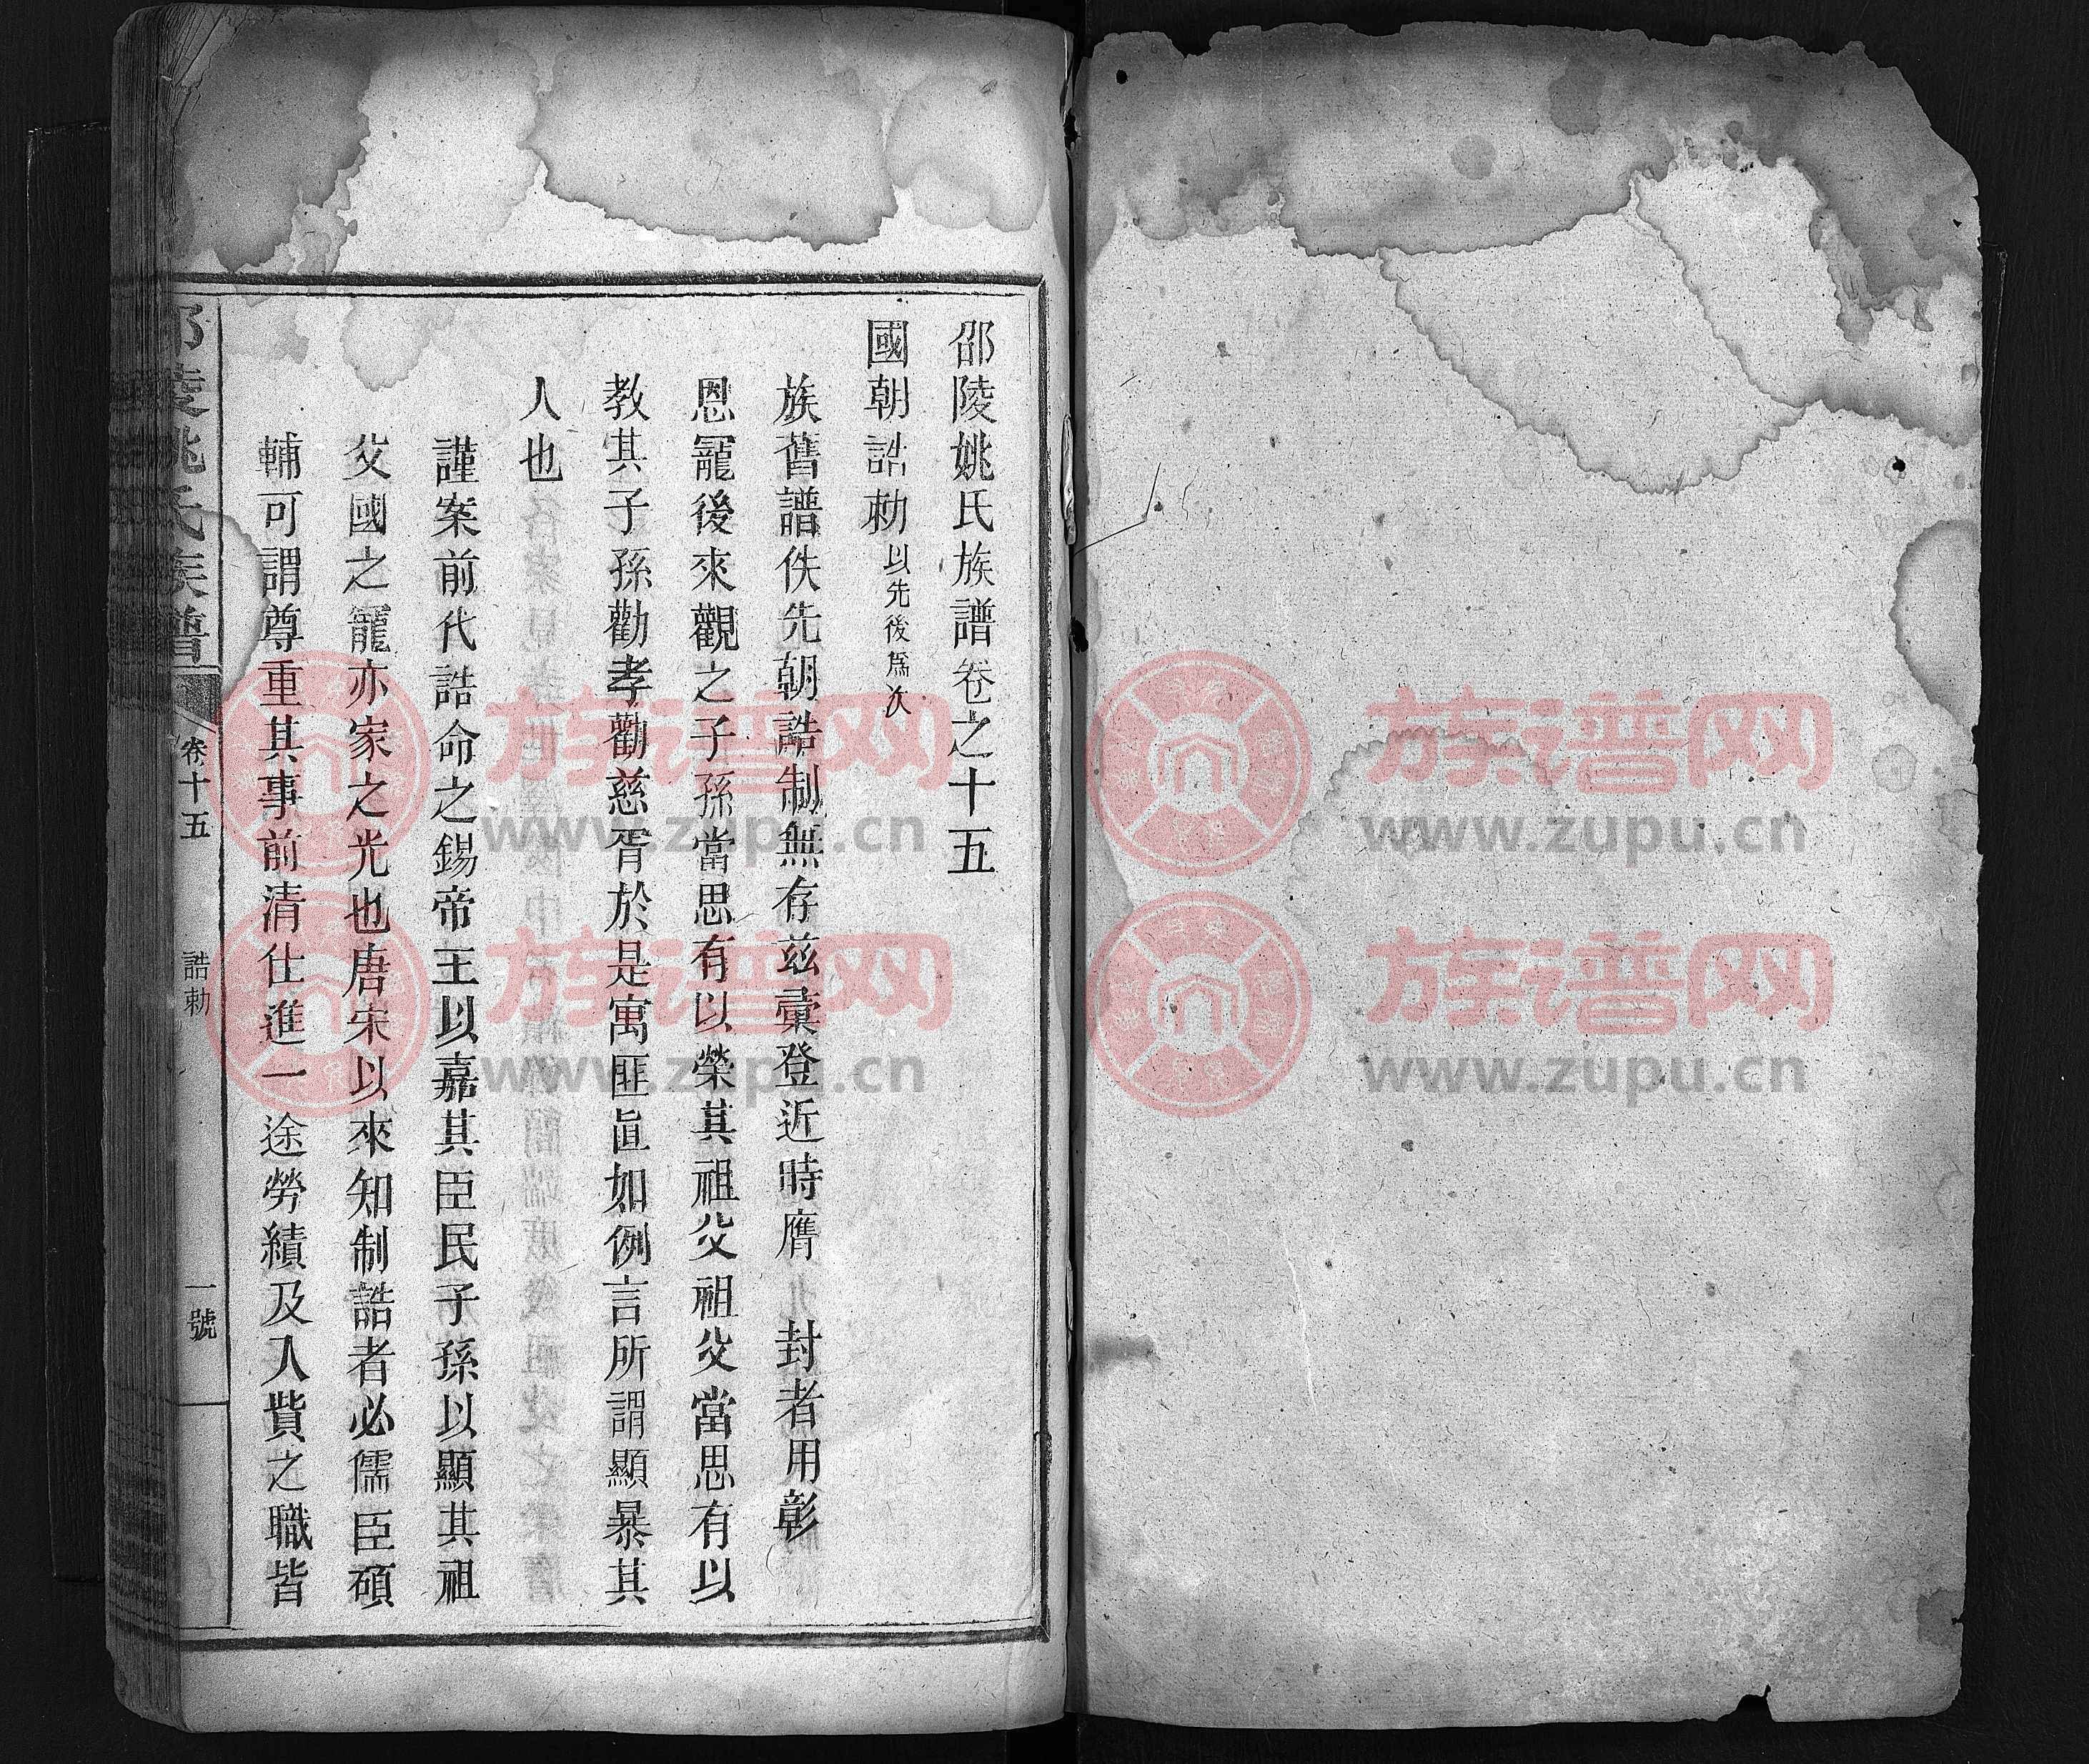 邵陵姚氏族譜卷之十五
國朝誥勅以先後爲次
族舊譜佚先朝誥制無存兹彙登近時膺 封者用彰
恩寵後來觀之子孫當思有以榮其祖父祖父當思有以
教其子孫勸孝勸慈胥於是寓匪眞如例言所謂顯暴其
人也
謹案前代誥命之錫帝王以嘉其臣民子孫以顯其祖
父國之寵亦家之光也唐宋以來知制誥者必儒臣碩
輔可謂尊重其事前清仕進一途勞績及入貲之職皆
邵陵姚氏族譜
卷十五
誥勅
一號
族谱网
www.zupu.cn
族谱网
www.zupu.cn
族谱网
www.zupu.cn
族谱网
www.zupu.cn